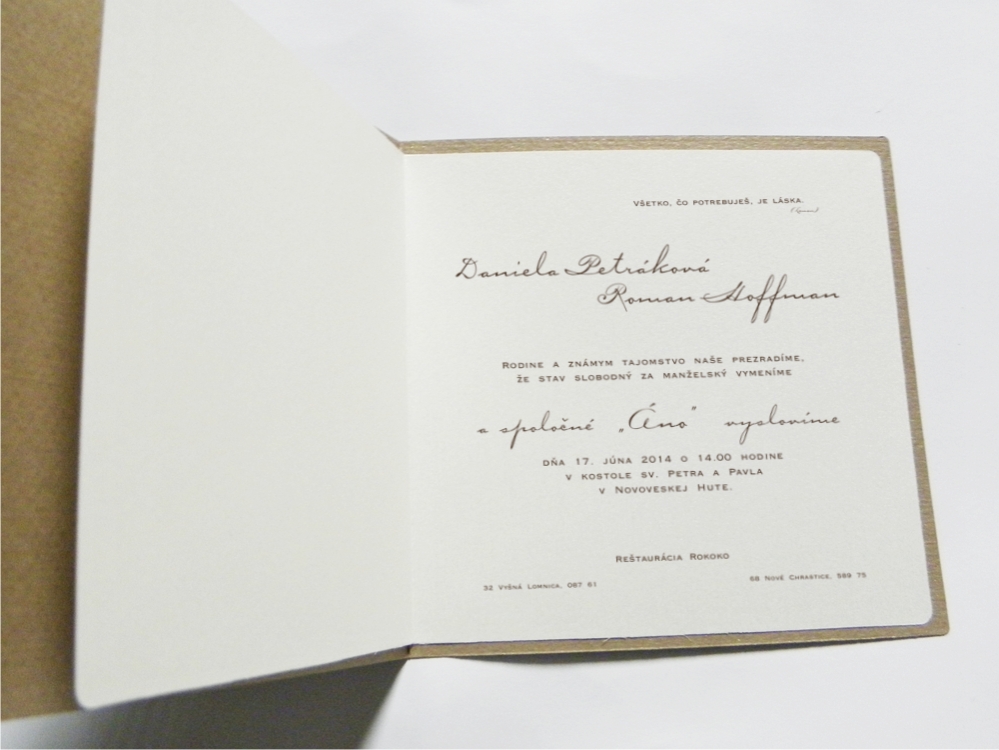 Všetko, čo potrebuješ, je láska.
Daniela Petráková
Roman Hoffman
Rodine a známym tajomstvo naše prezradíme,
že stav slobodný za manželský vymeníme
a spoločné „Áno” vyslovíme
dňa 17. júna 2014 o 14.00 hodine
v kostole sv. Petra a Pavla
v Novoveskej Hute.
Reštaurácia Rokoko
32 Vyšná Lomnica, 067 61
68 Nové Chrastice, 589 75